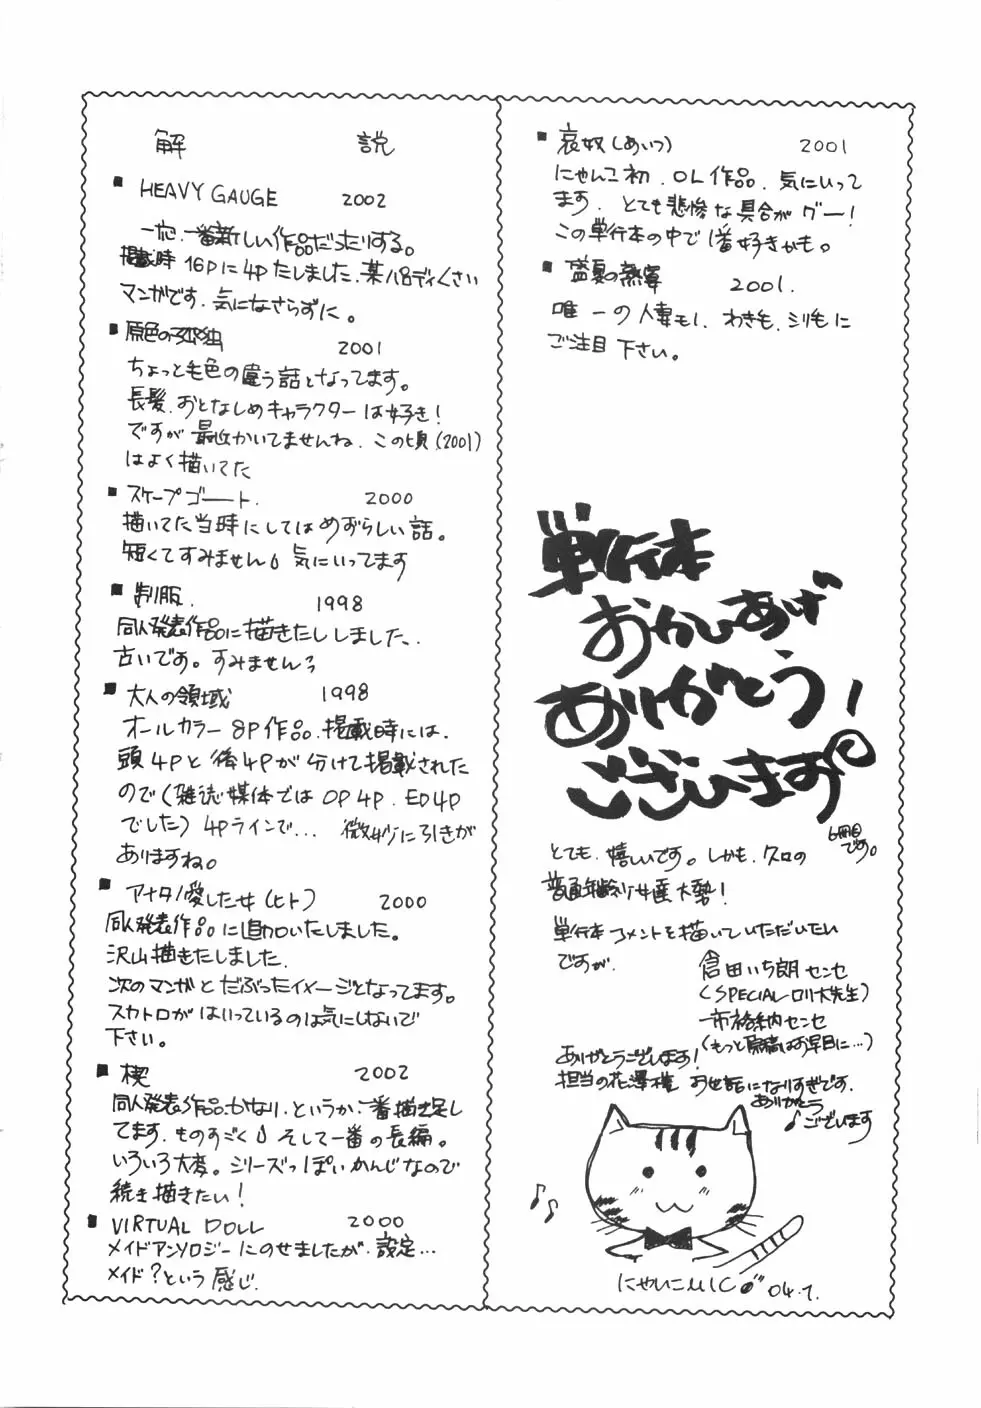 解 説
■ HEAVY GAUGE 2002
一応、一番新しい作品だったりする。
掲載時 16Pに4Pたしました、某パロディくさい
マンガです、気になさらずに。
■ 原色の孤独 2001
ちょっと毛色の違う話となってます。
長髪、おとなしめキャラクターは好き!
ですが 最近かいてませんね、この頃(2001)
はよく描いてた
■ スケープゴート. 2000
描いてた当時にしてはめずらしい話。
短くてすみません 気にいってます
■ 制服. 1998
同人発表作品に描きたししました、
古いです。すみませんっ
■ 大人の領域 1998
オールカラー 8P作品、掲載時には、
頭4Pと後4Pが分けて掲載された
ので(雑誌媒体ではOP4P、ED4P
でした)4Pラインで... 微妙に引きが
ありますね。
■ アナタノ愛した女(ヒト) 2000
同人発表作品に追加いたしました。
沢山描きたしました.
次のマンガと だぶったイメージとなってます。
スカトロが はいっているのは気にしないで
下さい。
■ 楔 2002
同人発表作品、かなり、というか、一番描き足し
てます、ものすごく そして一番の長編。
いろいろ大変。シリーズっぽいかんじなので
続き描きたい!
■ VIRTUAL DOLL 2000
メイドアンソロジーにのせましたが、設定...
メイド?という感じ.
■ 哀奴(あいつ) 2001
にゃんこ初、OL作品、気にいって
ます、とても悲惨な具合がグー!
この単行本の中で1番好きかも。
■ 盛夏の熱宴 2001.
唯一の人妻モノ、わきも、シリもに
ご注目下さい。
単行本
おかいあげ
ありがとう!
ございます
6冊目
です。
とても、嬉しいです。しかも、クロの
単行本コメントを描いていただいた
ですが、
倉田いち朗センセ
(SPECIALロリ大先生)
市格納センセ
(もっと原稿はお早目に...)
ありがとうございます!
担当の花澤様 お世話になりすぎです.
ありがとう
♪ございます
にゃんこMIC 04.7.